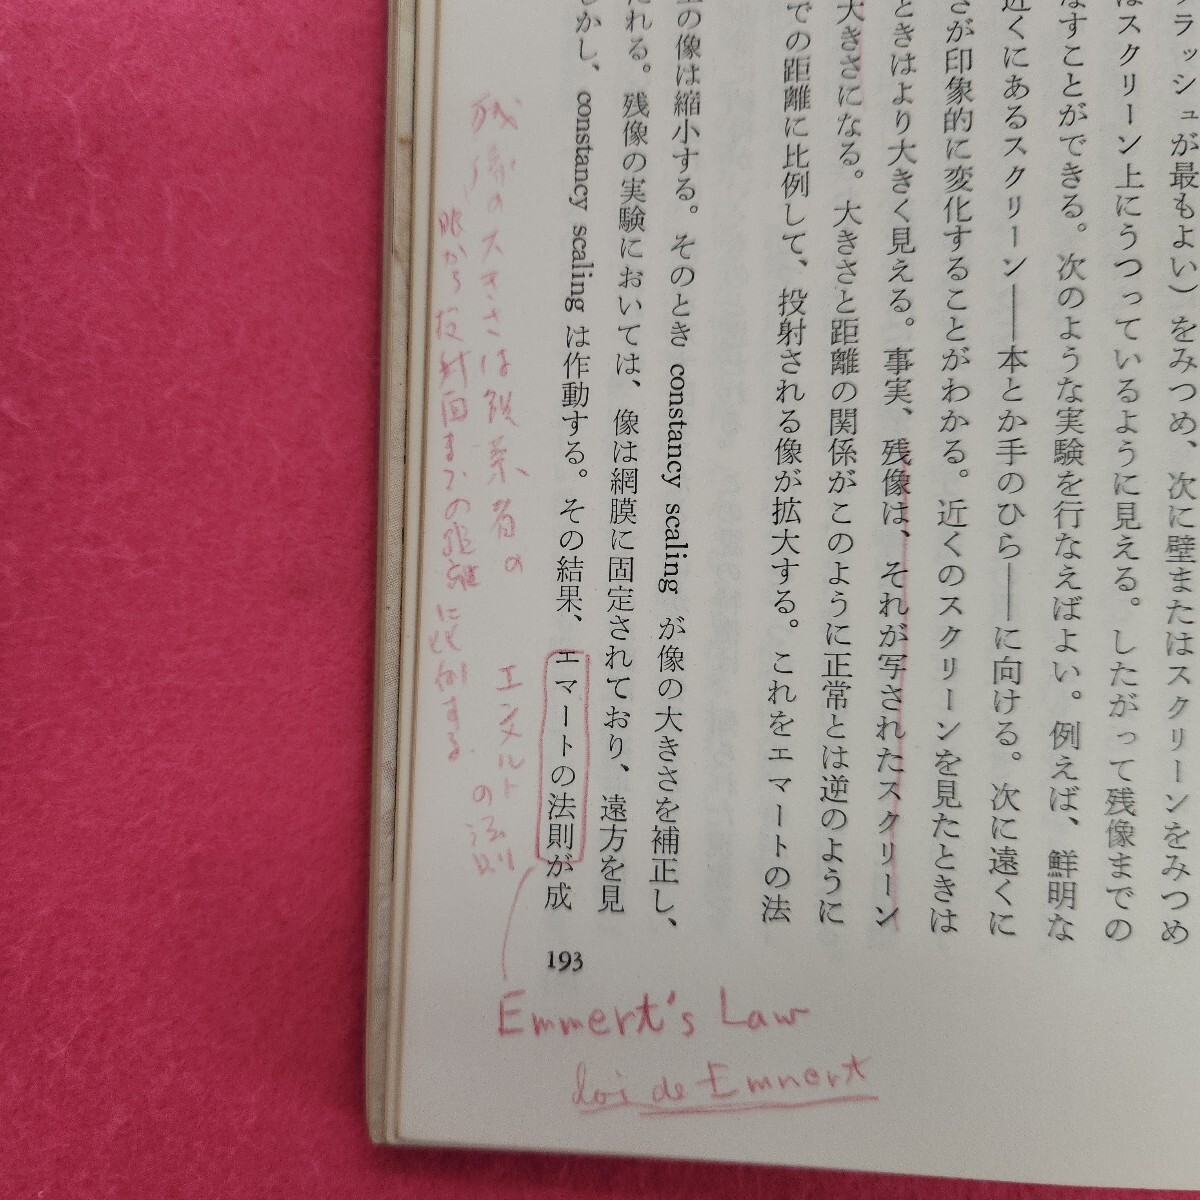 ラッシュが最もよい）をみつめ、次に壁またはスクリーンをみつめ
はスクリーン上にうつっているように見える。したがって残像までの
なすことができる。次のような実験を行なえばよい。例えば、鮮明な
近くにあるスクリーン――本とか手のひら――に向ける。次に遠くに
さが印象的に変化することがわかる。近くのスクリーンを見たときは
ときはより大きく見える。事実、残像は、それが写されたスクリーン
大きさになる。大きさと距離の関係がこのように正常とは逆のように
での距離に比例して、投射される像が拡大する。これをエマートの法
の像は縮小する。そのとき constancy scaling が像の大きさを補正し、
たれる。残像の実験においては、像は網膜に固定されており、遠方を見
かし、constancy scaling は作動する。その結果、エマートの法則が成
193
残像の大きさは観察者の
眼から投射面までの距離に比例する
エンメルト
の法則
Emmert's Law
loi de Emmert